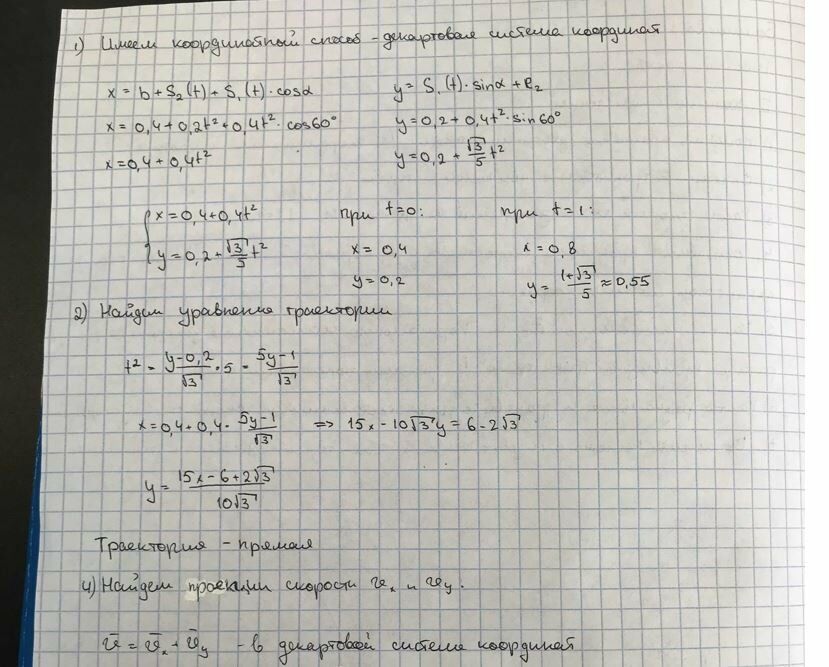 1) Имеем координатный способ - декартовая система координат
x = b + S₂(t) + S₁(t)·cosα
y = S₁(t)·sinα + l₂
x = 0,4 + 0,2t² + 0,4t²·cos60°
y = 0,2 + 0,4t²·sin60°
x = 0,4 + 0,4t²
y = 0,2 + √3/5 t²
{ x = 0,4 + 0,4t²
y = 0,2 + √3/5 t²
при t=0:
x = 0,4
y = 0,2
при t=1:
x = 0,8
y = (1+√3)/5 ≈ 0,55
2) Найдем уравнение траектории
t² = (y-0,2)/√3 · 5 = (5y-1)/√3
x = 0,4 + 0,4 · (5y-1)/√3 => 15x - 10√3y = 6 - 2√3
y = (15x - 6 + 2√3)/(10√3)
Траектория - прямая
4) Найдем проекции скорости 𝑣ₓ и 𝑣ᵧ.
v̄ = v̄ₓ + v̄ᵧ - в декартовой системе координат